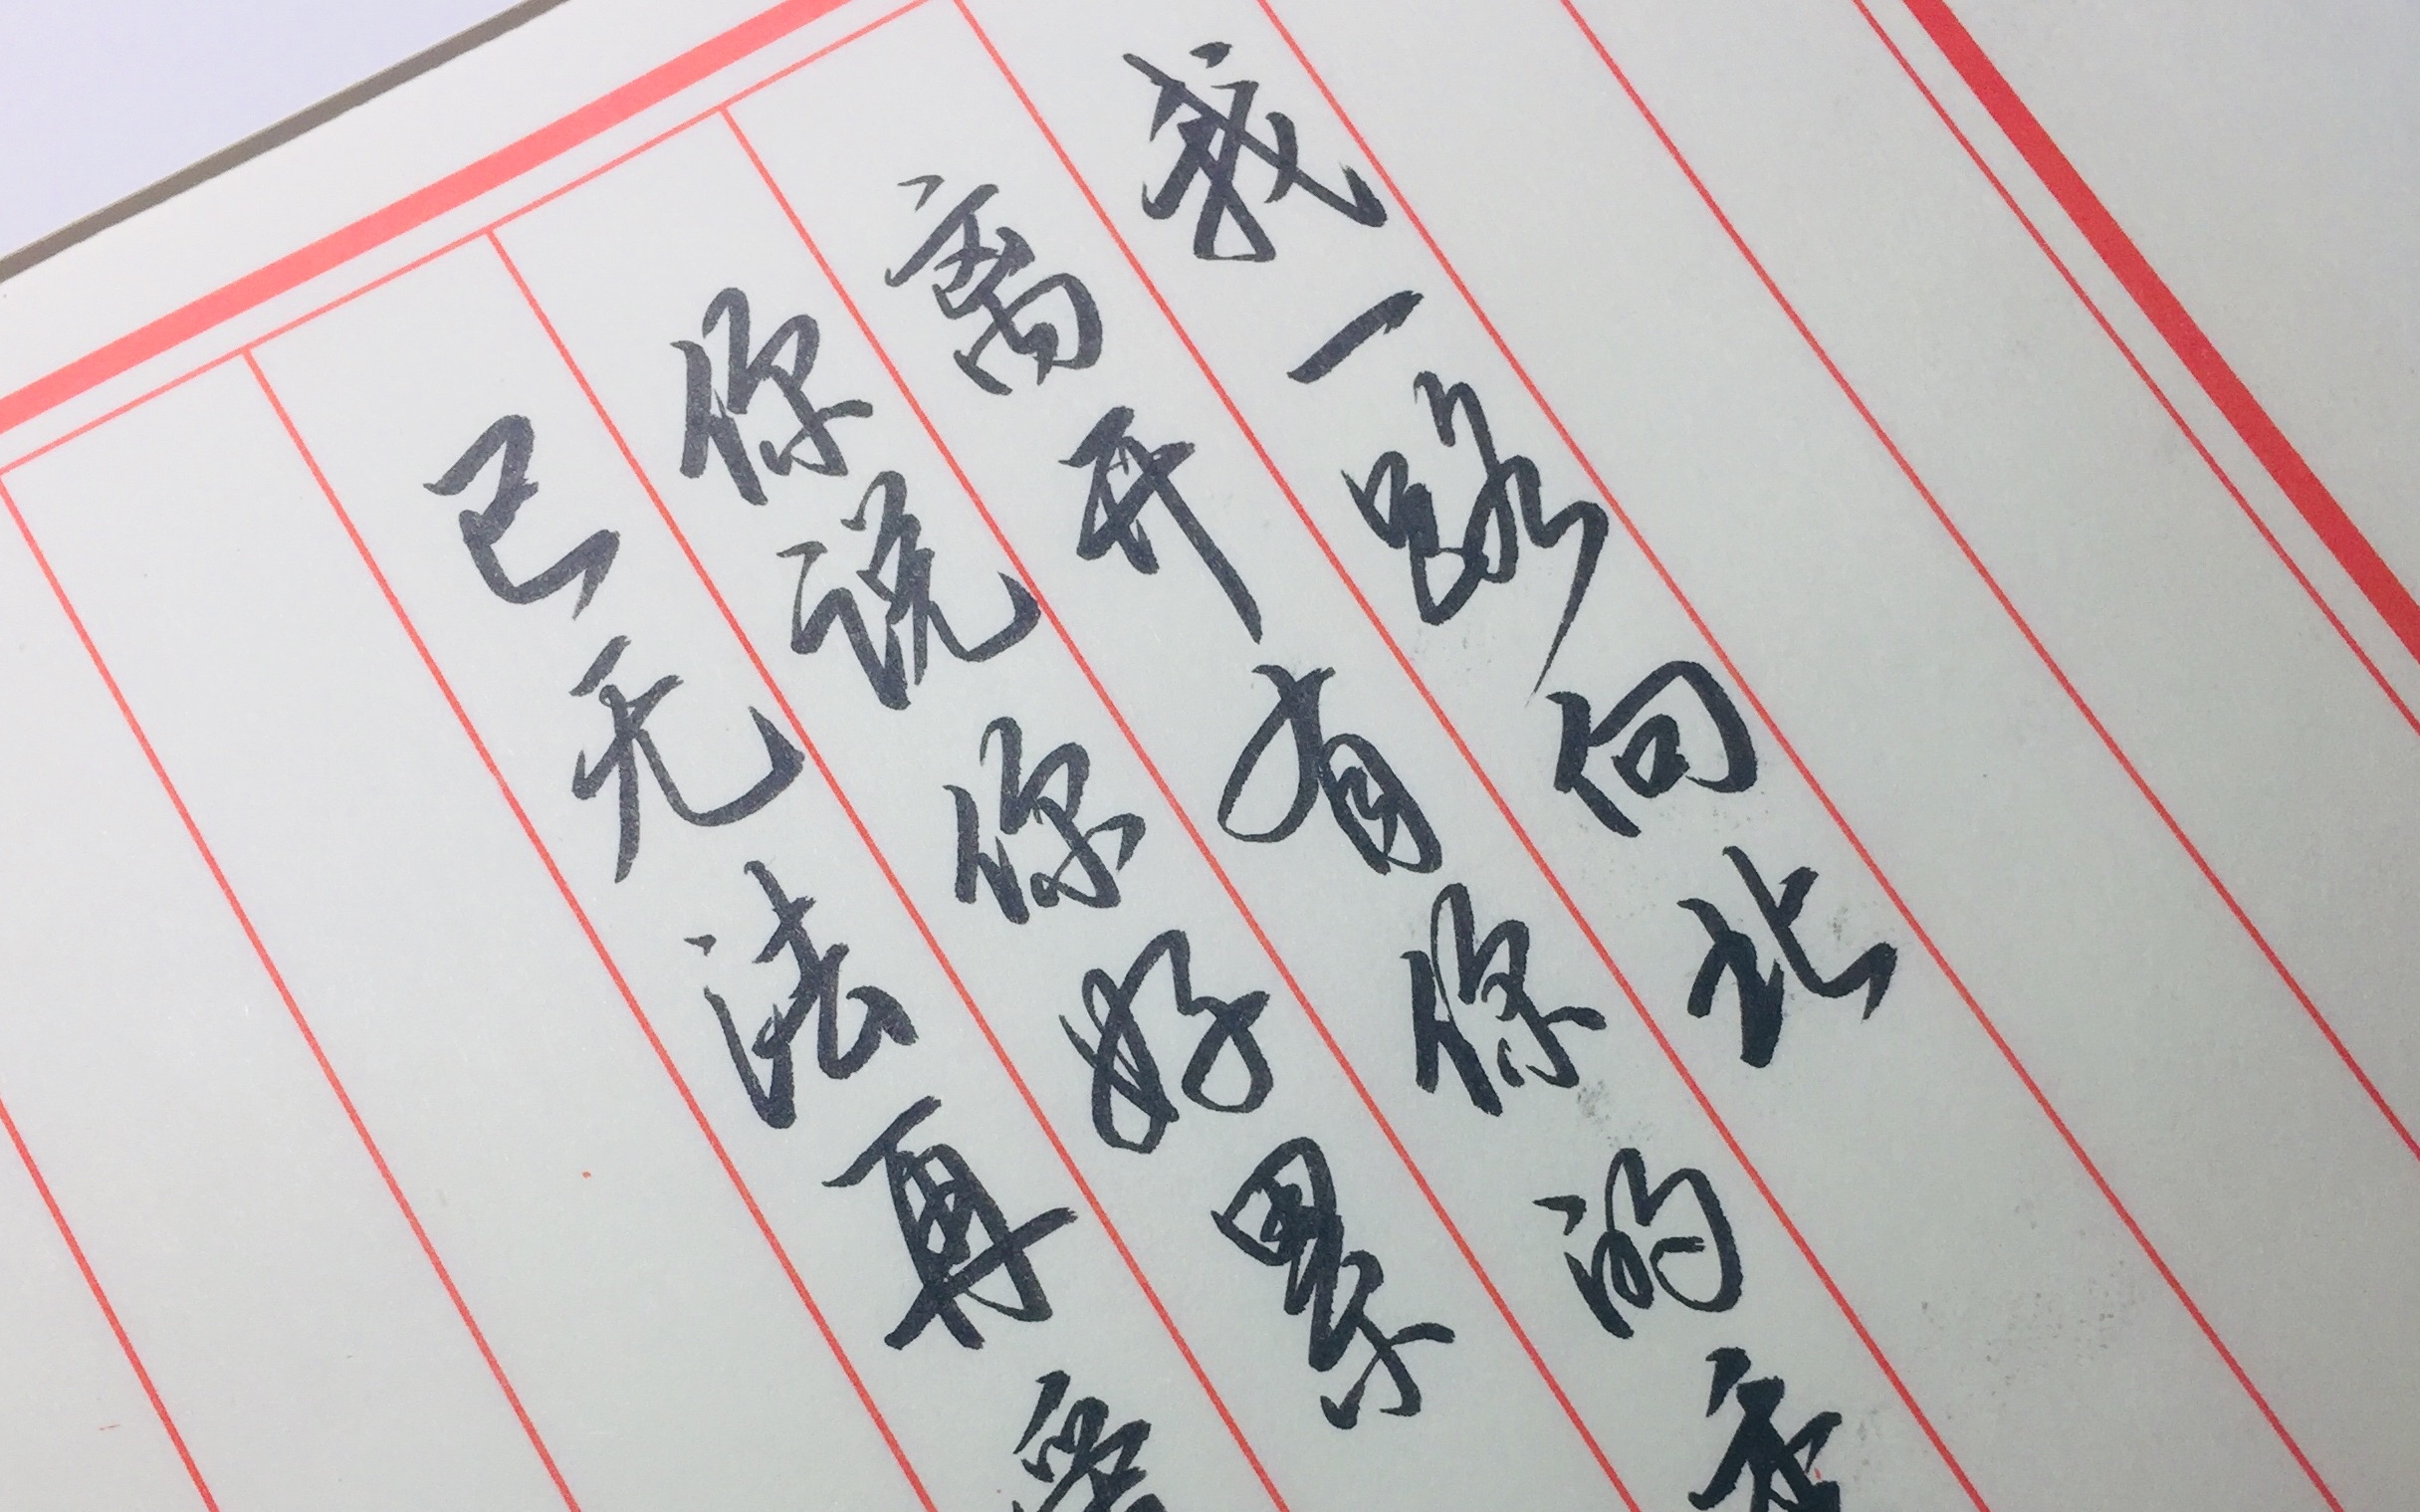 我一路向北
离开有你的季
你说你好累
已无法再爱